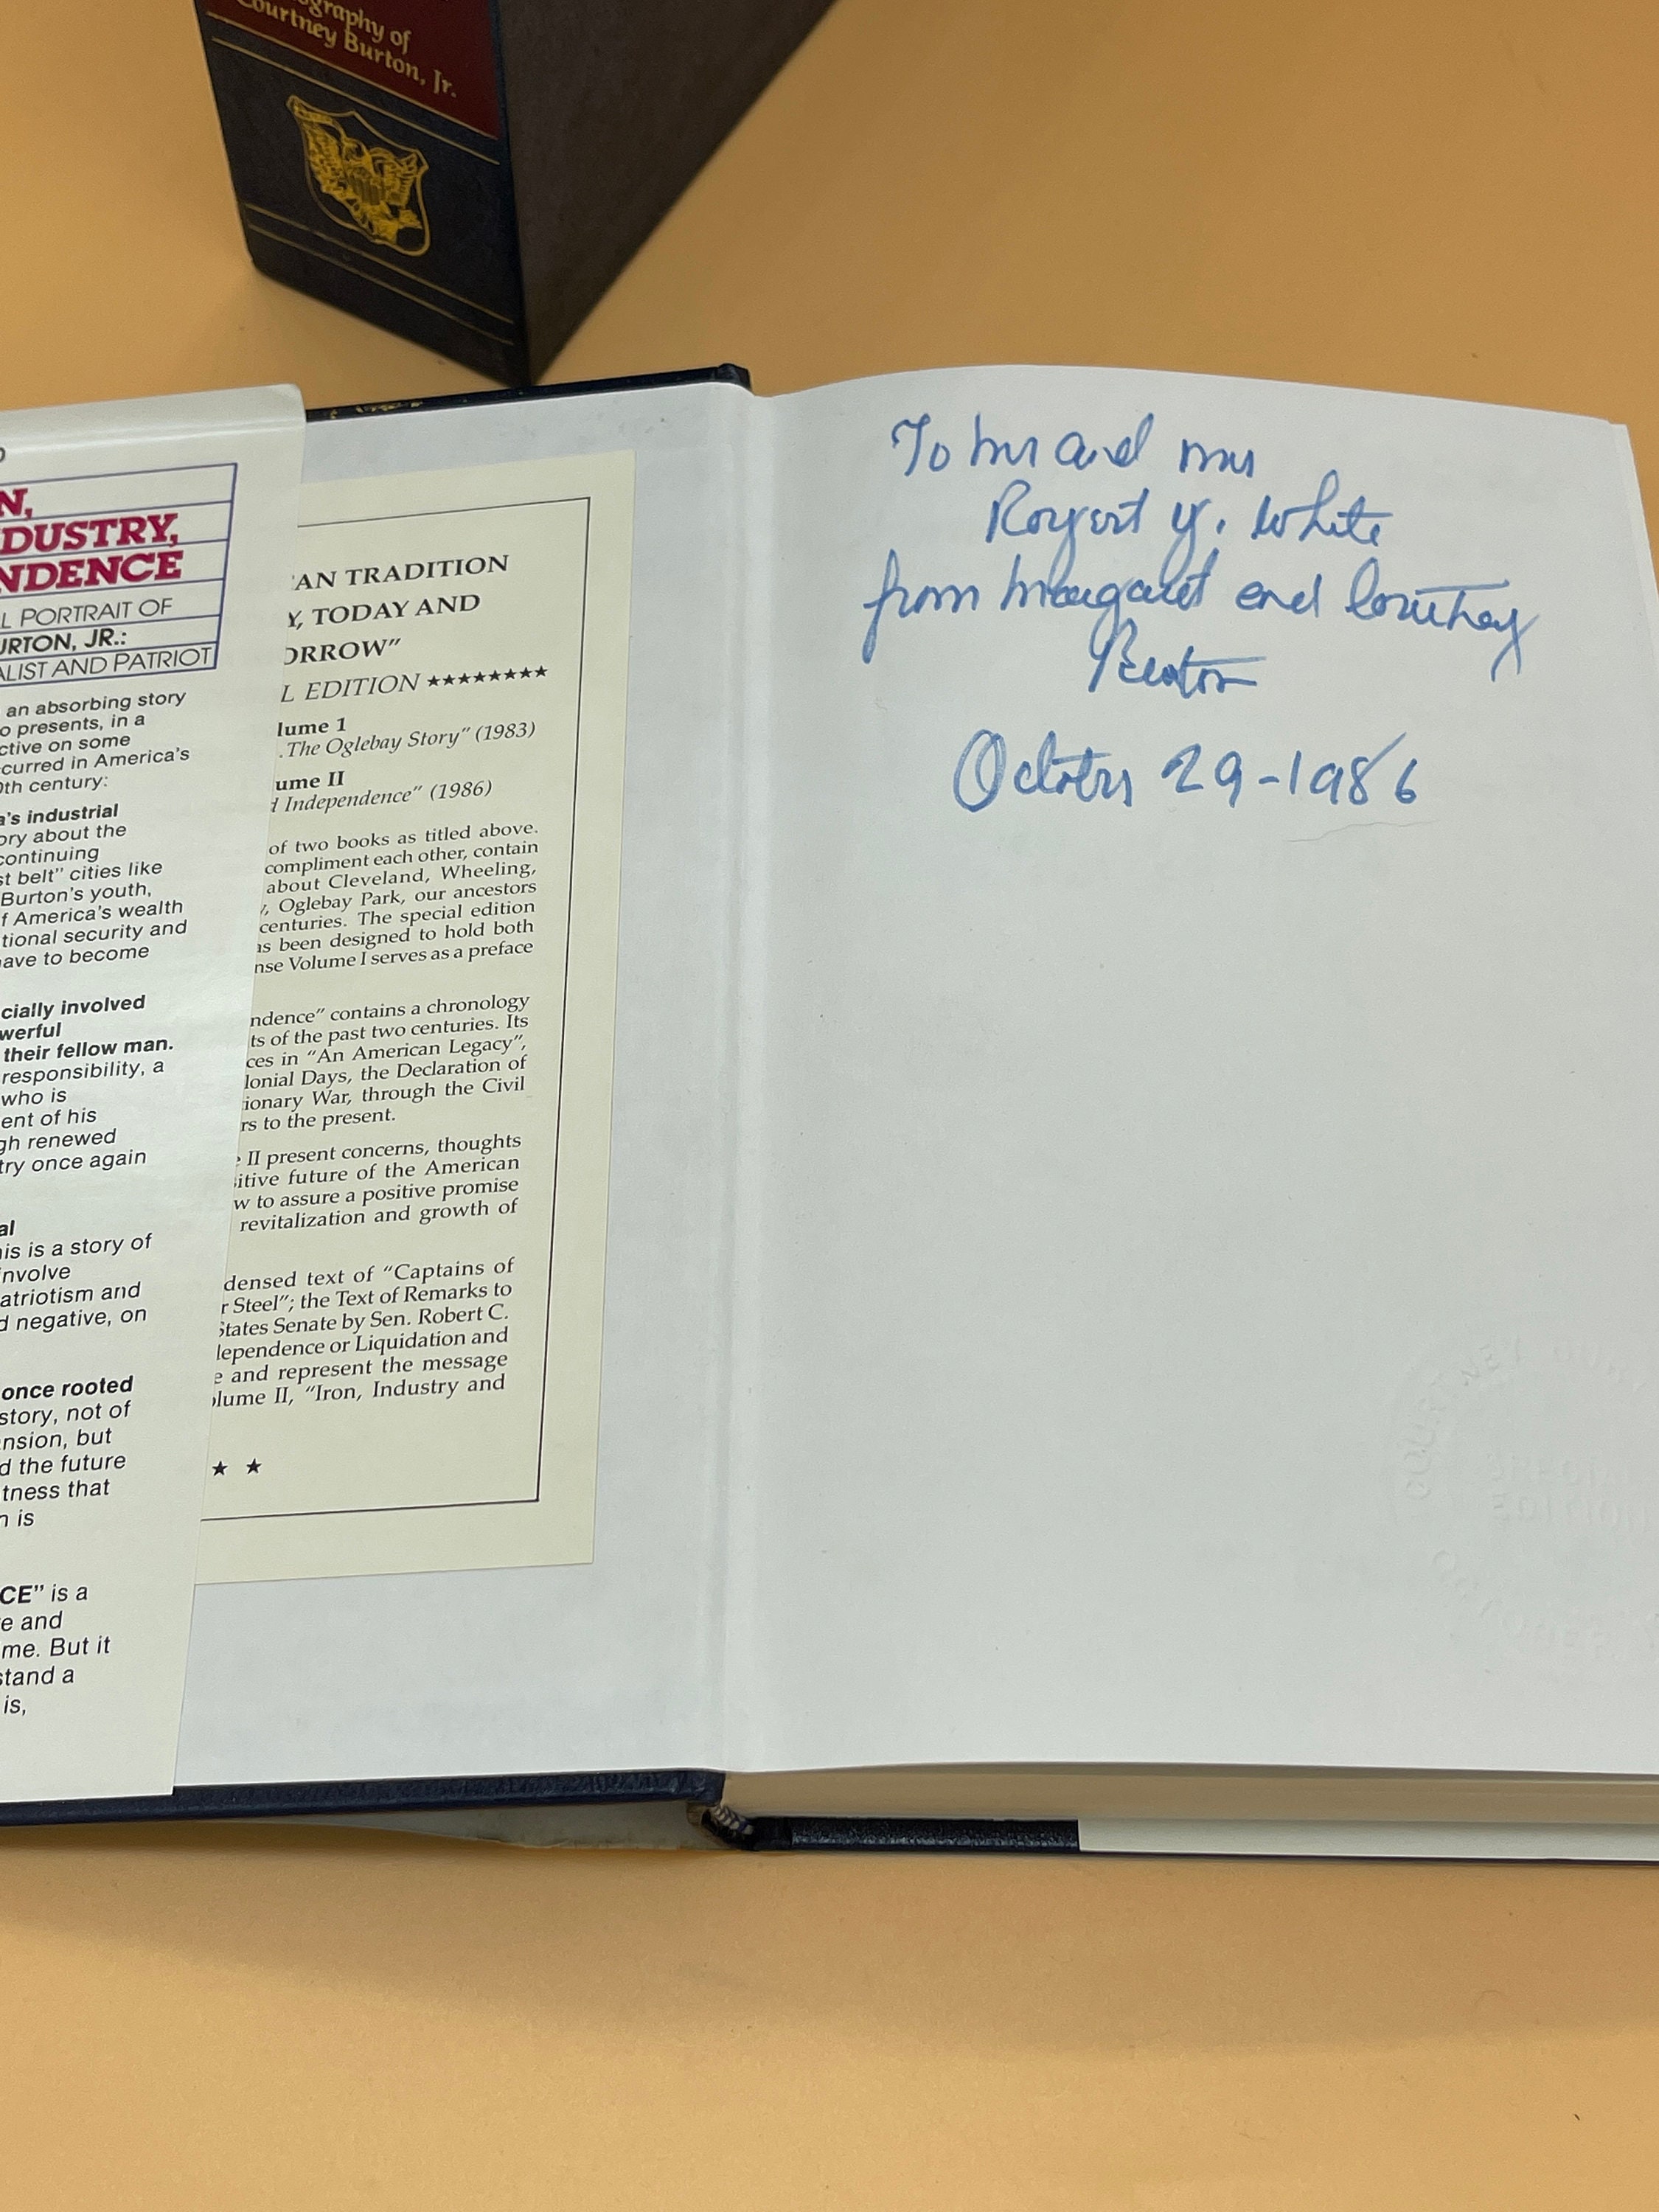 ography of
Courtney Burton, Jr.
N,
DUSTRY,
NDENCE
L PORTRAIT OF
URTON, JR.:
ALIST AND PATRIOT
an absorbing story
o presents, in a
ctive on some
curred in America's
0th century:
a's industrial
ory about the
continuing
st belt" cities like
Burton's youth,
f America's wealth
tional security and
have to become
cially involved
werful
their fellow man.
responsibility, a
who is
ent of his
gh renewed
try once again
al
his is a story of
involve
atriotism and
d negative, on
once rooted
story, not of
nsion, but
d the future
tness that
n is
CE" is a
e and
me. But it
stand a
is,
AN TRADITION
Y, TODAY AND
ORROW”
L EDITION ★★★★★★★★
lume 1
. The Oglebay Story” (1983)
ume II
d Independence” (1986)
of two books as titled above.
compliment each other, contain
about Cleveland, Wheeling,
y, Oglebay Park, our ancestors
centuries. The special edition
as been designed to hold both
nse Volume I serves as a preface
ndence” contains a chronology
ts of the past two centuries. Its
ces in “An American Legacy”,
lonial Days, the Declaration of
ionary War, through the Civil
rs to the present.
e II present concerns, thoughts
itive future of the American
w to assure a positive promise
revitalization and growth of
densed text of “Captains of
r Steel”; the Text of Remarks to
States Senate by Sen. Robert C.
dependence or Liquidation and
e and represent the message
olume II, “Iron, Industry and
★ ★
To Mr and Mrs
Y. White
from Margaret and Courtney
Burton
October 29-1986